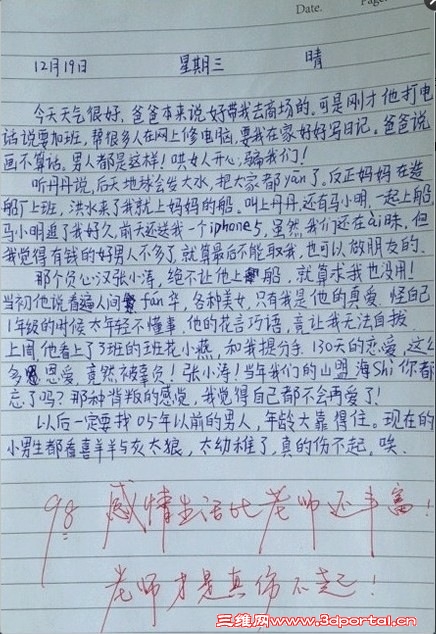 Date.
Page.
12月19日 星期三 晴
今天天气很好，爸爸本来说好带我去商场的。可是刚才他打电
话说要加班，帮很多人在网上修电脑，要我在家好好写日记。爸爸说
画不算话。男人都是这样！哄女人开心，骗我们！
听丹丹说，后天地球会发大水，把大家都yān了。反正妈妈在造
船厂上班，洪水来了我就上妈妈的船。叫上丹丹还有马小明，一起上船，
马小明追了我好久，前天还送我一个iphone5，虽然我们还在ài昧，但
我觉得有钱的好男人不多了，就算最后不能取我，也可以做朋友的。
那个负心汉张小涛，绝不让他上船，就算求我也没用！
当初他说看遍人间fán华，各种美女，只有我是他的真爱。怪自己
1年级的时候太年轻不懂事，他的花言巧语，竟让我无法自拔
上周，他看上了3班的班花小燕，和我提分手，130天的恋爱，这么
多恩爱，竟然被辜负！张小涛！当年我们的山盟海Shì你都
忘了吗？那种背叛的感觉，我觉得自己都不会再爱了！
以后一定要找05年以前的男人，年龄大靠得住。现在的
小男生都看喜羊羊与灰太狼，太幼稚了，真的伤不起，唉
98 感情生活比老师还丰富！
老师才是真伤不起！
三维网www.3dportal.cn